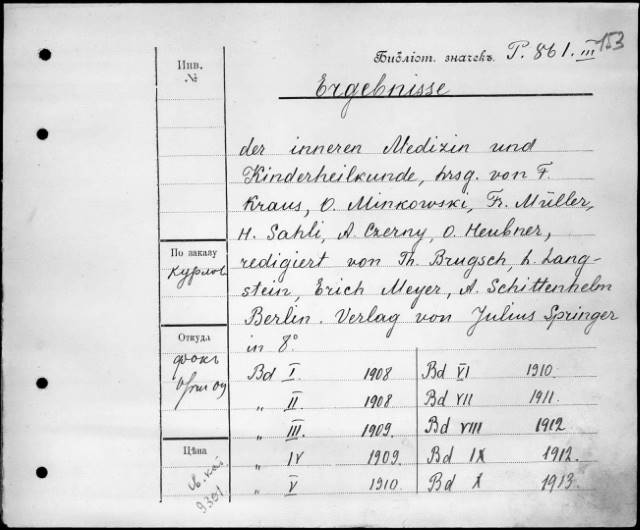 153
Библіот. значекъ P. 861. III
Инв.
№
Ergebnisse
der inneren Medizin und
Kinderheilkunde, hrsg. von F.
Kraus, O. Minkowski, Fr. Müller,
H. Sahli, A. Czerny, O. Heubner,
redigiert von Th. Brugsch, L. Lang-
stein, Erich Meyer, A. Schittenhelm
Berlin. Verlag von Julius Springer
in 8°
По заказу
Курлов
Откуда
Цѣна
9301
Bd I 1908
„ II 1908
„ III. 1909.
„ IV 1909.
„ V 1910.
Bd VI 1910.
Bd VII 1911.
Bd VIII 1912
Bd IX 1912.
Bd X 1913.